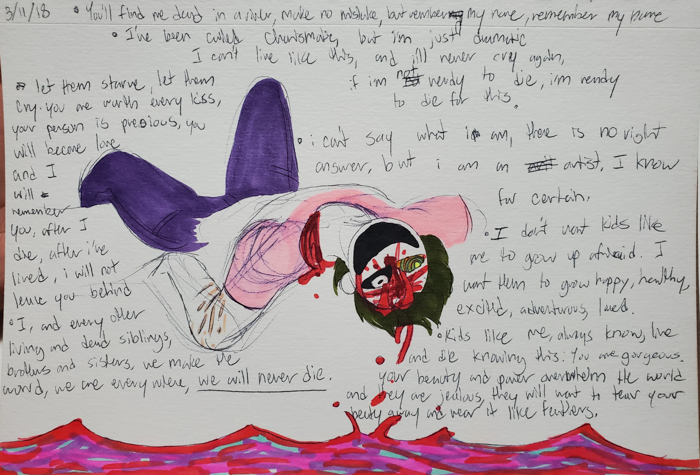 3/11/18
• You'll find me dead in a river, make no mistake, but remember my name, remember my name
• I've been called charismatic, but i'm just dramatic
I can't live like this, and i'll never cry again,
if im not ready to die, i'm ready
to die for this.
• let them starve, let them
cry. you are worth every kiss,
your person is precious, you
will become love
and I
will
remember
you, after I
die, after i've
lived, i will not
leave you behind
• I, and every other
living and dead siblings,
brothers and sisters, we make the
world, we are everywhere, we will never die.
• i can't say what i am, there is no right
answer, but i am an artist, I know
for certain.
• I don't want kids like
me to grow up afraid. I
want them to grow happy, healthy,
excited, adventurous, loved.
• Kids like me, always know, live
and die knowing this: You are gorgeous.
your beauty and power overwhelm the world
and they are jealous, they will want to tear your
beauty away and wear it like feathers.